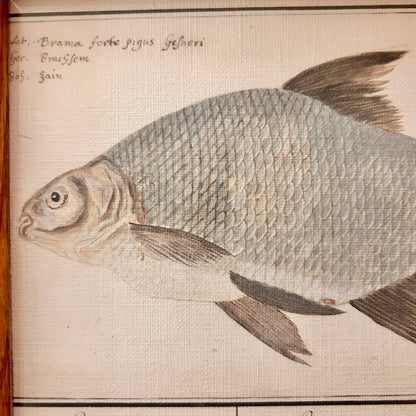 Lat. Brama forte pigus Gesneri
Ger. Brachsem
Boh. Zain